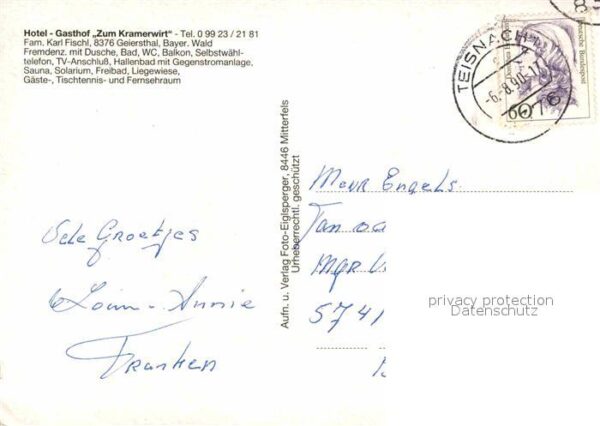 Hotel - Gasthof „Zum Kramerwirt“ - Tel. 0 99 23 / 21 81
Fam. Karl Fischl, 8376 Geiersthal, Bayer. Wald
Fremdenz. mit Dusche, Bad, WC, Balkon, Selbstwähl-
telefon, TV-Anschluß, Hallenbad mit Gegenstromanlage,
Sauna, Solarium, Freibad, Liegewiese,
Gäste-, Tischtennis- und Fernsehraum
TEISNACH
-6.-8.90-17
Deutsche Bundespost
60
Aufn. u. Verlag Foto-Eiglsperger, 8446 Mitterfels
Urheberrechtl. geschützt
Vele Groetjes
Annie
Franken
Mevr Engels
Mgr
5741
privacy protection
Datenschutz